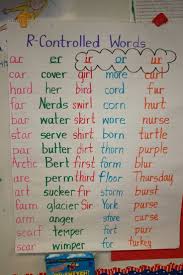 R-Controlled Words
ar er ir or ur
car cover girl more curl
hard her bird cord fur
far Nerds swirl corn hurt
bar water skirt wore nurse
star serve shirt born turtle
bar butter dirt thorn purple
Arctic Bert first form blur
are perm third floor Thursday
art sucker fir storm burst
farm glacier Sir York purse
arm anger store curse
scarf temper fort purr
scar wimper for turkey